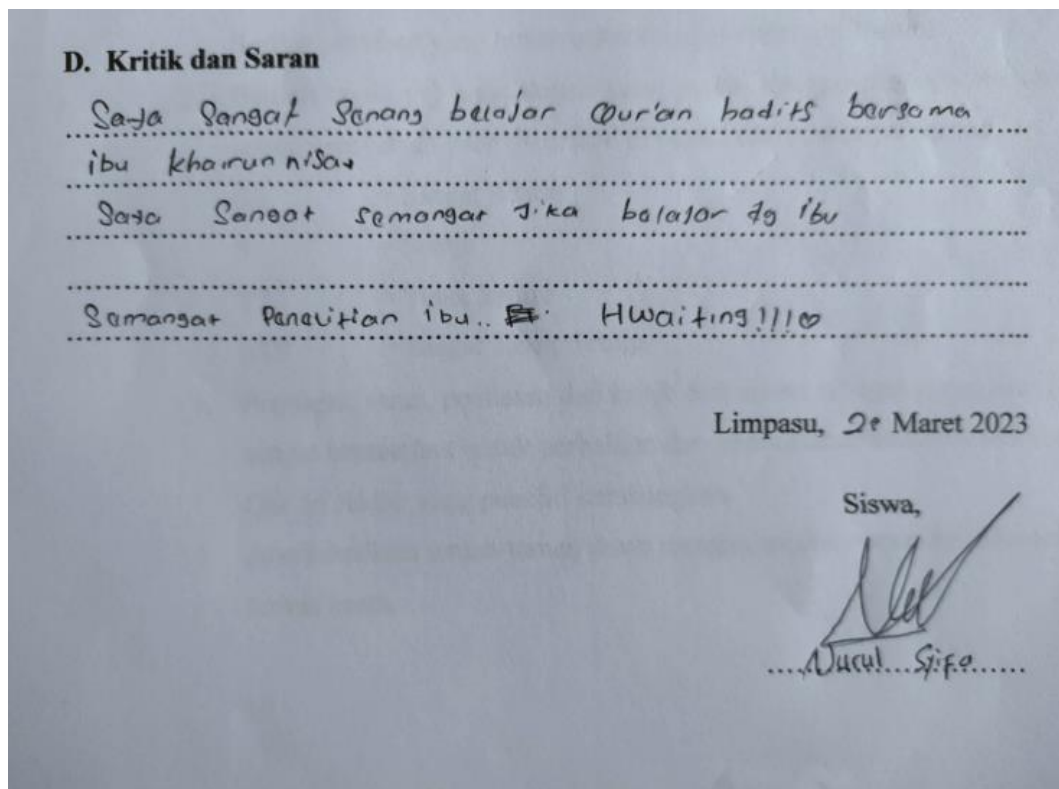 D. Kritik dan Saran
Saya Sangat Senang belajar Qur'an hadits bersama
ibu khairun nisa
Saya Sangat semangat Jika belajar dg ibu
Semangat Penelitian ibu.. Hwaiting!!!♡
Limpasu, Maret 2023
Siswa,
Nurul